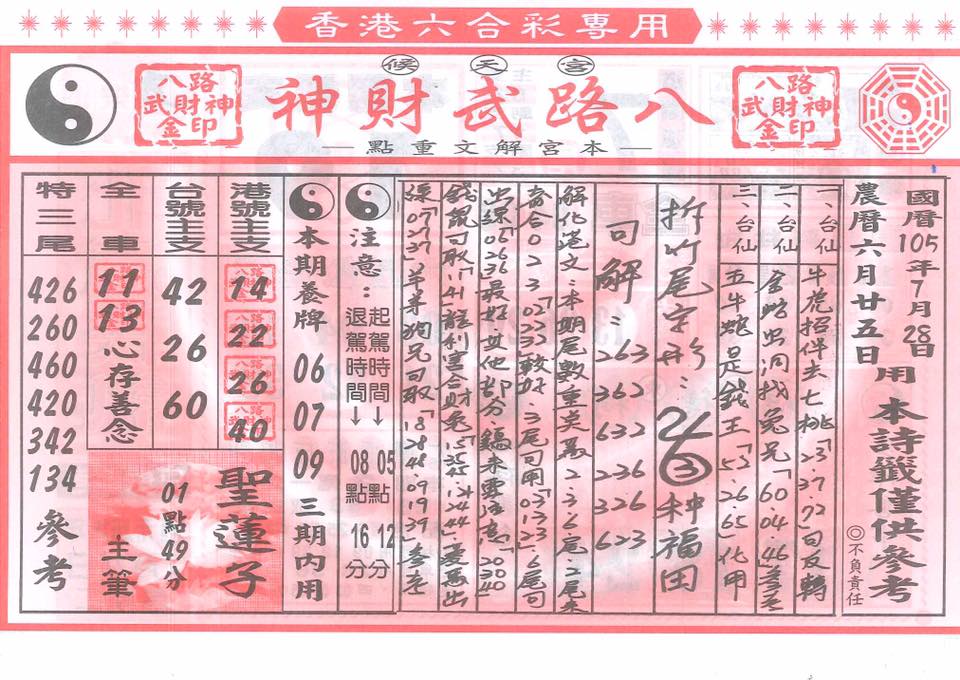 香港六合彩專用
宮天候
八路武財神
八路
武財神
金印
八路
武財神
金印
本宮解文重點
國曆105年7月28日
農曆六月廿五日
用
本詩籤僅供參考
◎不負責任
一、台仙
牛虎招伴去七桃「23.37.72」自反轉
二、台仙
金蛇出洞找兔兄「60.04.46」
三、台仙
五牛蛇是錢王「53.26.65」化用
拆竹尾字形:
2 6 ③ 種福田
可解:
263
362
632
236
326
623
解化港文:本期尾數重點為2.3.6尾.2尾來
奇合023「02.22.32」較好.3尾可用「03.13.23」6尾可
出線「06.26.36」最好.其他部分.「20.30.40」
錢銀可取「11.41」龍利害合財兔「15.25.45.14.24.44」
「07.27.37」羊哥狗兄可取「18.28.48.09.19.39」參考
注意:
起駕時間↓
05點12分
退駕時間↓
08點16分
本期養牌
06
07
09
三期內用
港號主支
14
22
26
40
台號主支
42
26
60
全車
11
13
心存善念
聖蓮子
01點49分
主筆
特三尾
426
260
460
420
342
134
參考